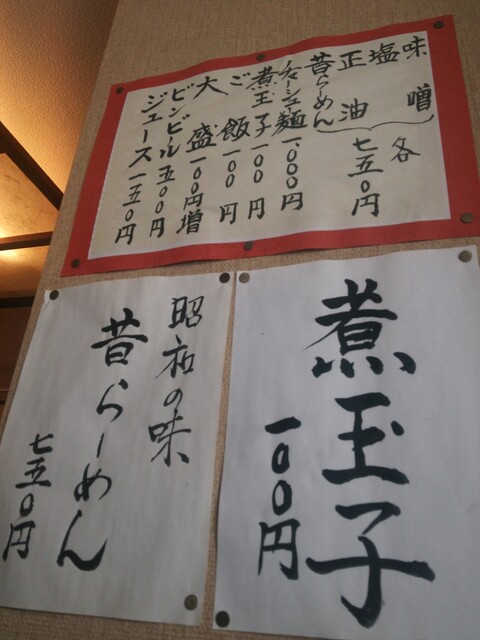 味噌
塩
正油
昔らーめん
各七五〇円
チャーシュー麺 一、〇〇〇円
煮玉子 一〇〇円
ご飯 一〇〇円
大盛 一〇〇円増
ビンビール 五〇〇円
ジュース 一五〇円
煮玉子
一〇〇円
昭和の味
昔らーめん
七五〇円